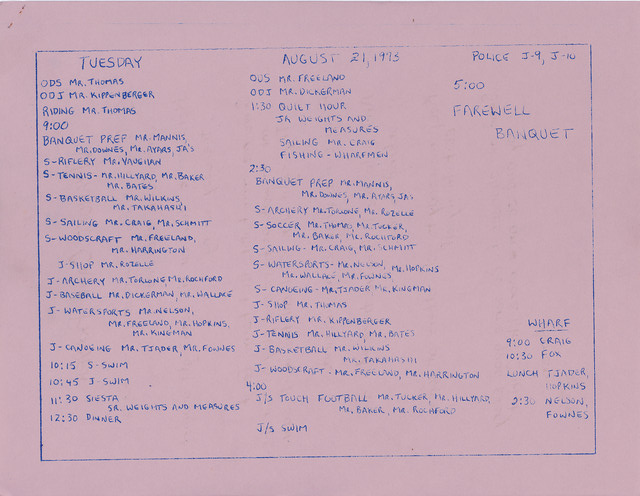 TUESDAY
ODS MR. THOMAS
ODJ MR. KIPPENBERGER
RIDING MR. THOMAS
9:00
BANQUET PREP MR. MANNIS,
MR. DOWNES, MR. AYARS, JA'S
S-RIFLERY MR. VAUGHAN
S-TENNIS- MR. HILLYARD, MR. BAKER
MR. BATES
S-BASKETBALL MR. WILKINS,
MR. TAKAHASHI
S-SAILING MR. CRAIG, MR. SCHMITT
S-WOODSCRAFT MR. FREELAND,
MR. HARRINGTON
J-SHOP MR. ROZELLE
J-ARCHERY MR. TORLONE MR. ROCHFORD
J-BASEBALL MR. DICKERMAN, MR. WALLACE
J-WATERSPORTS MR. NELSON,
MR. FREELAND, MR. HOPKINS,
MR. KINGMAN
J-CANOEING MR. TJADER, MR. FOWNES
10:15 S-SWIM
10:45 J-SWIM
11:30 SIESTA
SR. WEIGHTS AND MEASURES
12:30 DINNER
AUGUST 21, 1973
ODS MR. FREELAND
ODJ MR. DICKERMAN
1:30 QUIET HOUR
JR WEIGHTS AND
MEASURES
SAILING MR. CRAIG
FISHING - WHARFMEN
2:30
BANQUET PREP MR. MANNIS,
MR. DOWNES, MR. AYARS, JA'S
S-ARCHERY MR. TORLONE, MR. ROZELLE
S-SOCCER MR. THOMAS, MR. TUCKER,
MR. BAKER, MR. ROCHFORD
S-SAILING- MR. CRAIG, MR. SCHMITT
S-WATERSPORTS- MR. NELSON, MR. HOPKINS
MR. WALLACE, MR. FOWNES
S-CANOEING- MR. TJADER MR. KINGMAN
J-SHOP MR. THOMAS
J-RIFLERY MR. KIPPENBERGER
J-TENNIS MR. HILLYARD, MR. BATES
J-BASKETBALL MR. WILKINS
MR. TAKAHASHI
J-WOODSCRAFT - MR. FREELAND, MR. HARRINGTON
4:00
J/S TOUCH FOOTBALL MR. TUCKER, MR. HILLYARD,
MR. BAKER, MR. ROCHFORD
J/S SWIM
POLICE J-9, J-10
5:00
FAREWELL
BANQUET
WHARF
9:00 CRAIG
10:30 FOX
LUNCH TJADER,
HOPKINS
2:30 NELSON,
FOWNES